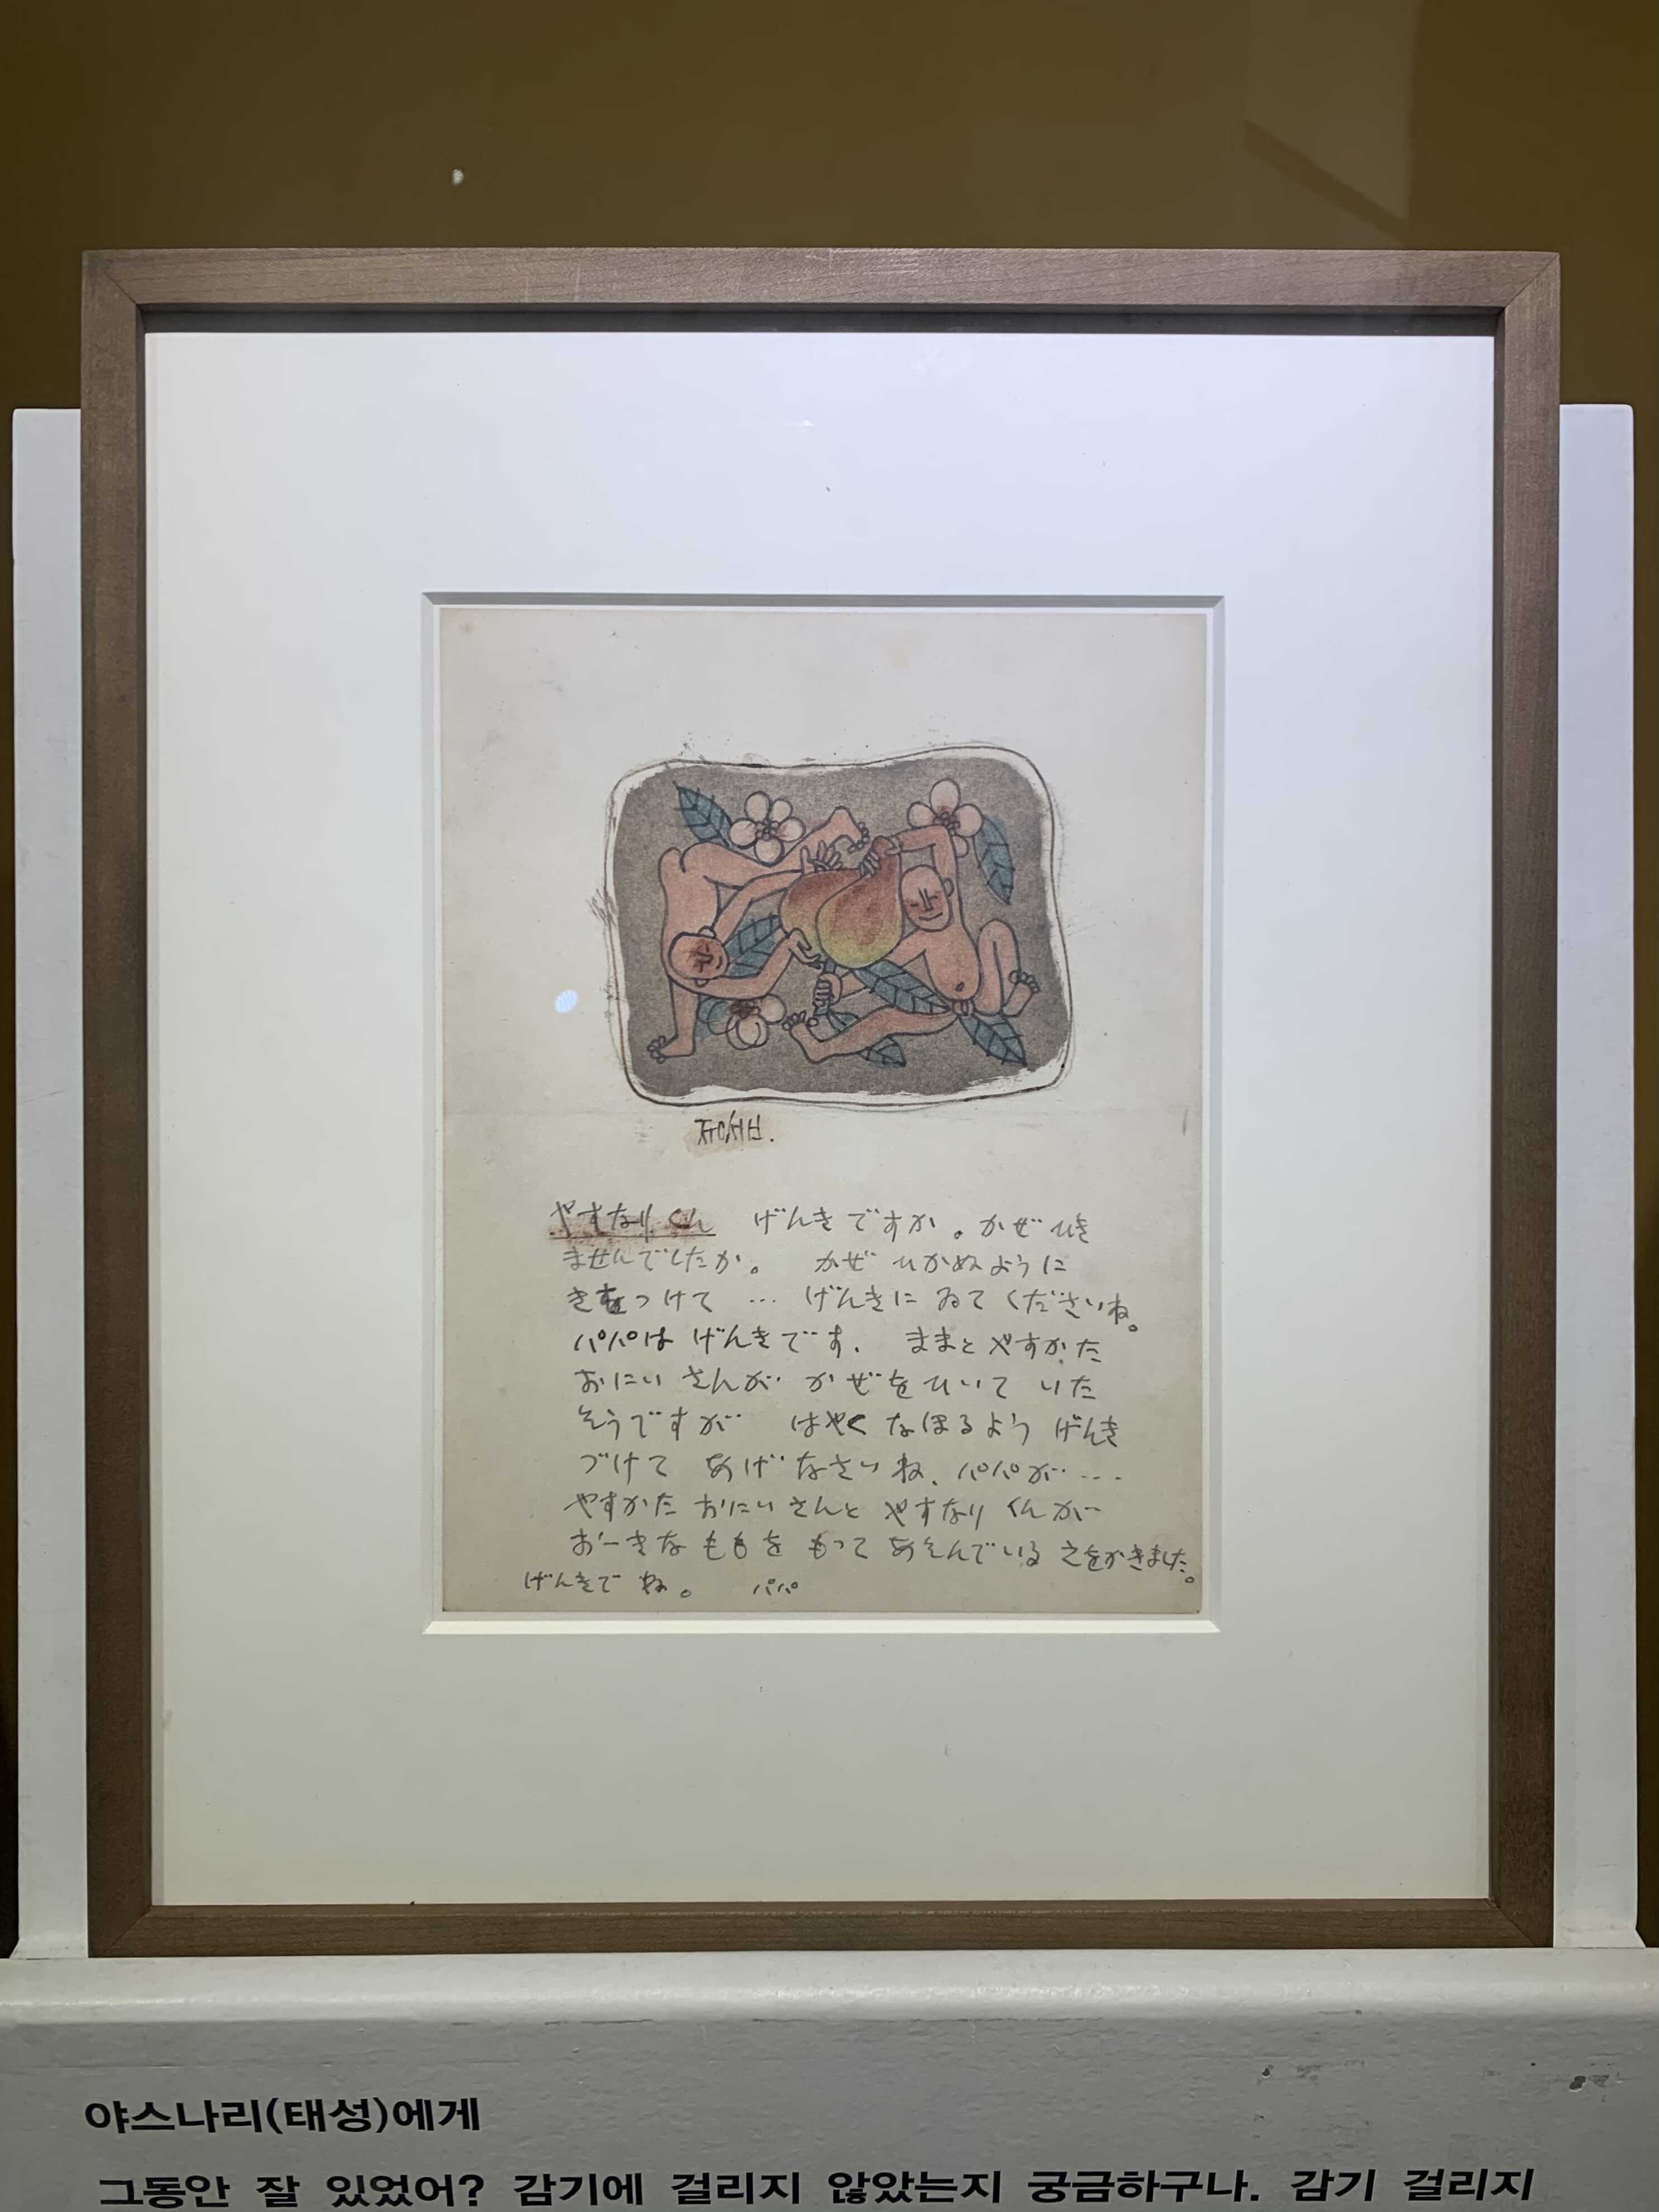 ㅈㅜㅇㅅㅓㅂ.
やすなりくん げんきですか。かぜひき
ませんでしたか。 かぜ ひかぬように
きをつけて … げんきに ゐてくださいね。
パパは げんきです. ままと やすかた
おにいさんが かぜをひいて いた
そうですが はやく なほるよう げんき
づけて あげなさいね、パパが…
やすかた おにいさんと やすなりくんが
おーきな ももを もって あそんでいる えをかきました。
げんきでね。 パパ
야스나리(태성)에게
그동안 잘 있었어? 감기에 걸리지 않았는지 궁금하구나. 감기 걸리지